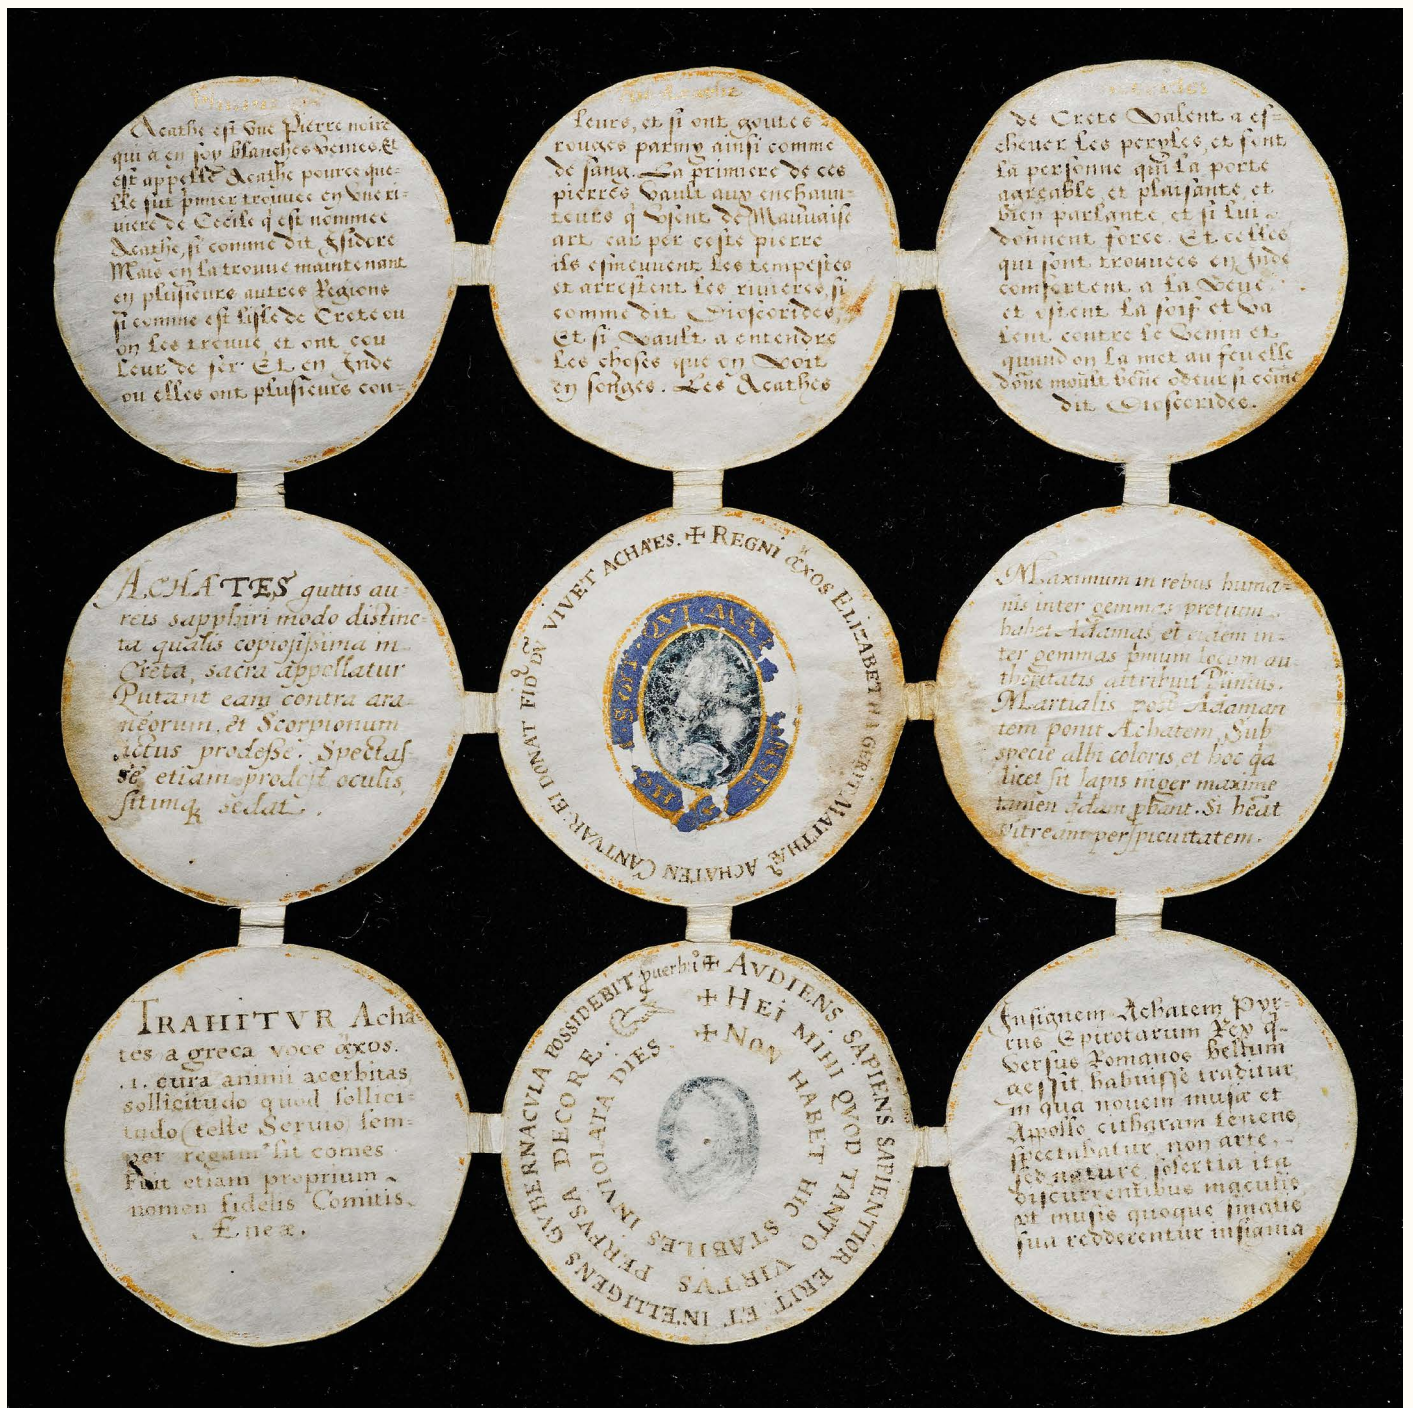 Acathe est vne Pierre noire
qui a en soy blanches veines. Et
est appellé Acathe pource que-
lle fut prmier trouuee en vne ri-
uiere de Cecile q̃ est nommee
Acathe, si comme dit Isidore
Mais en la trouue maintenant
en plusieurs autres Regions
si comme est lisle de Crete ou
on les treuue, et ont cou
leur de fer. Et en Inde
ou elles ont plusieurs cou-
leurs, et si ont goutes
rouges parmy ainsi comme
de sang. La primiere de ces
pierres vault aux enchann-
teurs q̃ vsent de Mauuaise
art car per ceste pierre
ils esmeuuent les tempestes
et arrestent les riuieres, si
comme dit Dioscorides,
Et si vault a entendre
les choses que en voit
en songes. Les Acathes
de Crete valent a es-
cheuer les peryles, et font
la personne qui la porte
agreable et plaisante et
bien parlante, et si lui
donnent force. Et celles
qui sont trouuees en Inde
comfortent a la veue
et ostent la soif et va
lent contre le venin et
quand on la met au feu elle
dõne moult bõne odeur si cõme
dit Dioscorides.
ACHATES guttis au-
reis sapphiri modo distinc-
ta qualis copiosissima in
Creta, sacra appellatur
Putant eam contra ara-
neorum, et Scorpionum
ictus prodesse. Spectas-
se etiam prodest oculis,
sitimq sedat.
✢ REGNI ἄχος ELIZABETHA GERIT, MATTHÆ ACHATEN CANTVAR: EI DONAT FIDQ̃ DV̄ VIVET ACHAES.
HONI SOIT QVI MAL PENSE
Maximum in rebus huma-
nis inter gemmas pretium
habet Adamas, et eidem in-
ter gemmas p̃mum locum au-
thoritatis attribuit Plinius.
Martialis post Adaman
tem ponit Achatem, Sub
specie albi coloris, et hoc q̃a
licet sit lapis niger maxime
tamen q̃dam p̃bant. Si heat
vitream perspicuitatem.
TRAHITVR Acha-
tes a greca voce ἄχος.
.1. cura animi acerbitas
sollicitudo quod sollici-
tudo (teste Seruio) sem-
per regum sit comes
Fuit etiam proprium
nomen fidelis Comitis
Æneæ.
✢ AVDIENS SAPIENS SAPIENTIOR ERIT ET INTELLIGENS GVBERNACVLA POSSIDEBIT. puerbi: 1
✢ HEI MIHI QVOD TANTO VIRTVS PERFVSA DECORE.
✢ NON HABET HIC STABILES INVIOLATA DIES
Insignem Achatem Pyr-
rus Epirotarum Rex q̃-
versus Romanos bellum
gessit, habuisse traditur
in qua nouem musæ et
Appollo citharam tenens
spectabatur, non arte,
sed nature solertia ita
discurrentibus maculis
vt musis quoque singulis
sua redderentur insignia